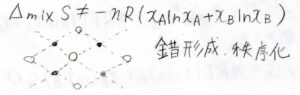 Δmix S ≠ -nR(xA ln xA + xB ln xB)
錯形成、秩序化